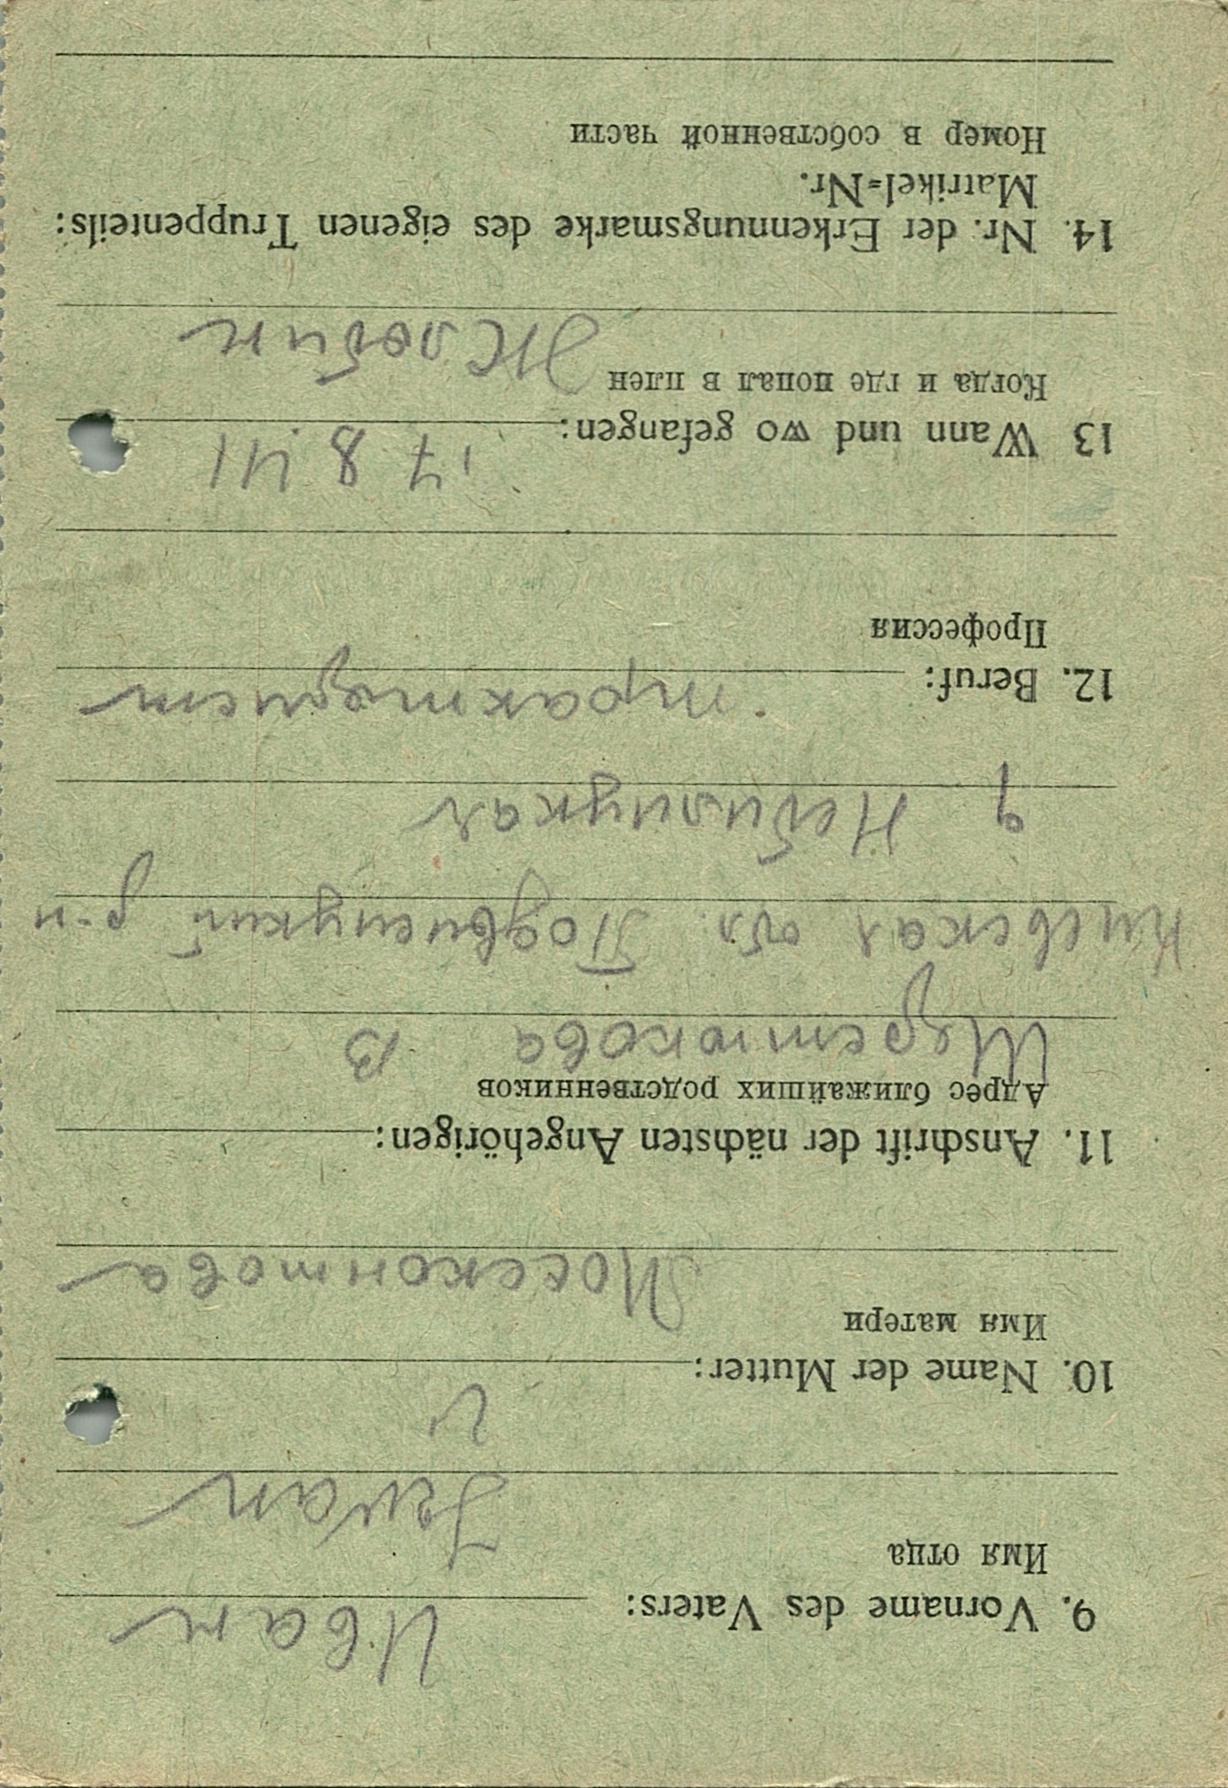 9. Vorname des Vaters: Иван
Имя отца
Iwan
10. Name der Mutter:
Имя матери
11. Anschrift der nächsten Angehörigen:
Адрес ближайших родственников
Шерстюкова В
Киевская обл. Подвысицкий р-н
Небилицкая
12. Beruf: тракторист
Профессия
13 Wann und wo gefangen: 17 8 41
Когда и где попал в плен Жлобин
14. Nr. der Erkennungsmarke des eigenen Truppenteils:
Matrikel=Nr.
Номер в собственной части